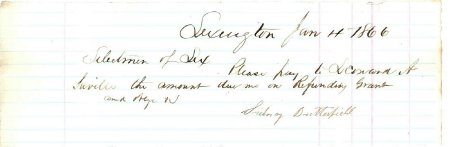 Lexington Jan 4 1866
Selectmen of Lex
Please pay to Leonard A
Saville the amount due me on Refunding Grant
and Oblige
Sidney Butterfield